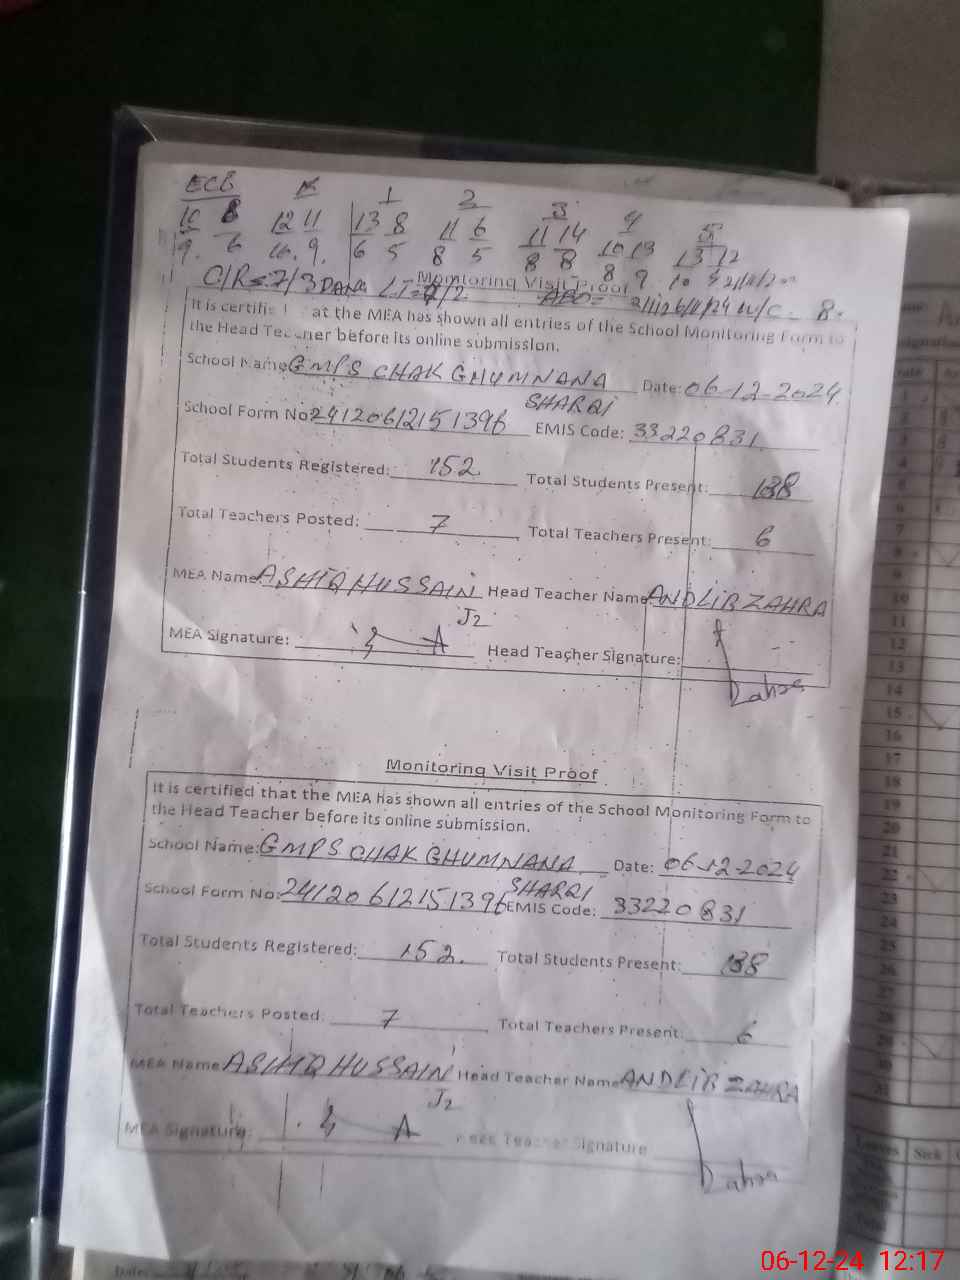 ECE K 1 2 3 4 5
10 8 12 11 13 8 11 6 11 14 10 13 13 12
9. 6 10. 9. 6 5 8 5 8 8 8 9 10
Monitoring Visit Proof
It is certifie at the MEA has shown all entries of the School Monitoring Form to
the Head Teacher before its online submission.
School Name: GMPS CHAK GHUMNANA SHARQI Date: 06-12-2024
School Form No: 24120612151396 EMIS Code: 33220831
Total Students Registered: 152 Total Students Present: 138
Total Teachers Posted: 7 Total Teachers Present: 6
MEA Name ASHIQ HUSSAIN Head Teacher Name ANDLIB ZAHRA
J2
MEA Signature: Head Teacher Signature:
Zahra
Monitoring Visit Proof
It is certified that the MEA has shown all entries of the School Monitoring Form to
the Head Teacher before its online submission.
School Name: GMPS CHAK GHUMNANA SHARQI Date: 06-12-2024
School Form No: 24120612151396 EMIS Code: 33220831
Total Students Registered: 152. Total Students Present: 138
Total Teachers Posted: 7 Total Teachers Present: 6
MEA Name ASHIQ HUSSAIN Head Teacher Name ANDLIB ZAHRA
J2
MEA Signature: Teacher Signature
Zahra
06-12-24 12:17